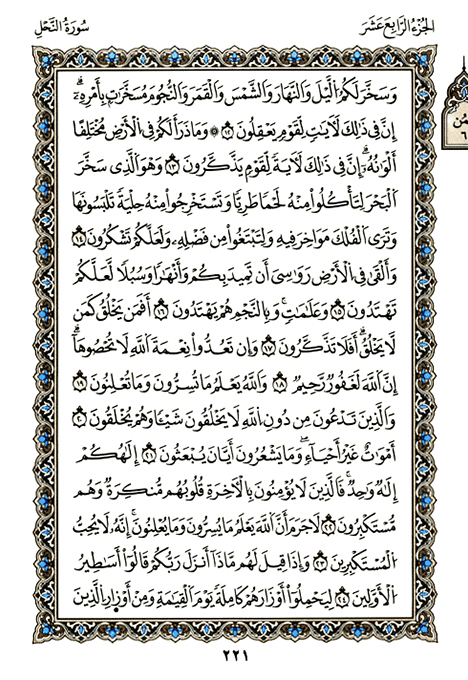 الجُزْءُ الرَّابِعَ عَشَرَ
سُورَةُ النَّحْلِ
وَسَخَّرَ لَكُمُ الَّيْلَ وَالنَّهَارَ وَالشَّمْسَ وَالْقَمَرَ وَالنُّجُومَ مُسَخَّرَاتٍ بِأَمْرِهِ
إِنَّ فِي ذَٰلِكَ لَآيَٰتٍ لِّقَوْمٍ يَعْقِلُونَ ١٢ وَمَا ذَرَأَ لَكُمْ فِي الْأَرْضِ مُخْتَلِفًا
أَلْوَٰنُهُ إِنَّ فِي ذَٰلِكَ لَآيَةً لِّقَوْمٍ يَذَّكَّرُونَ ١٣ وَهُوَ الَّذِي سَخَّرَ
الْبَحْرَ لِتَأْكُلُوا مِنْهُ لَحْمًا طَرِيًّا وَتَسْتَخْرِجُوا مِنْهُ حِلْيَةً تَلْبَسُونَهَا
وَتَرَى الْفُلْكَ مَوَاخِرَ فِيهِ وَلِتَبْتَغُوا مِن فَضْلِهِ وَلَعَلَّكُمْ تَشْكُرُونَ ١٤
وَأَلْقَىٰ فِي الْأَرْضِ رَوَاسِيَ أَن تَمِيدَ بِكُمْ وَأَنْهَٰرًا وَسُبُلًا لَّعَلَّكُمْ
تَهْتَدُونَ ١٥ وَعَلَٰمَٰتٍ وَبِالنَّجْمِ هُمْ يَهْتَدُونَ ١٦ أَفَمَن يَخْلُقُ كَمَن
لَّا يَخْلُقُ أَفَلَا تَذَّكَّرُونَ ١٧ وَإِن تَعُدُّوا نِعْمَةَ اللَّهِ لَا تُحْصُوهَا
إِنَّ اللَّهَ لَغَفُورٌ رَّحِيمٌ ١٨ وَاللَّهُ يَعْلَمُ مَا تُسِرُّونَ وَمَا تُعْلِنُونَ ١٩
وَالَّذِينَ تَدْعُونَ مِن دُونِ اللَّهِ لَا يَخْلُقُونَ شَيْئًا وَهُمْ يُخْلَقُونَ ٢٠
أَمْوَٰتٌ غَيْرُ أَحْيَآءٍ وَمَا يَشْعُرُونَ أَيَّانَ يُبْعَثُونَ ٢١ إِلَٰهُكُمْ
إِلَٰهٌ وَٰحِدٌ فَالَّذِينَ لَا يُؤْمِنُونَ بِالْآخِرَةِ قُلُوبُهُم مُّنكِرَةٌ وَهُم
مُّسْتَكْبِرُونَ ٢٢ لَا جَرَمَ أَنَّ اللَّهَ يَعْلَمُ مَا يُسِرُّونَ وَمَا يُعْلِنُونَ إِنَّهُ لَا يُحِبُّ
الْمُسْتَكْبِرِينَ ٢٣ وَإِذَا قِيلَ لَهُم مَّاذَا أَنزَلَ رَبُّكُمْ قَالُوا أَسَٰطِيرُ
الْأَوَّلِينَ ٢٤ لِيَحْمِلُوا أَوْزَارَهُمْ كَامِلَةً يَوْمَ الْقِيَٰمَةِ وَمِنْ أَوْزَارِ الَّذِينَ
٢٢١